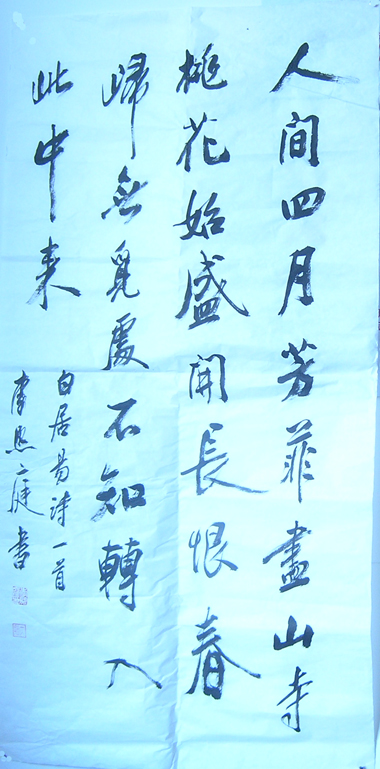 人間四月芳菲盡山寺
桃花始盛開長恨春
歸無覓處不知轉入
此中来
白居易诗一首
書